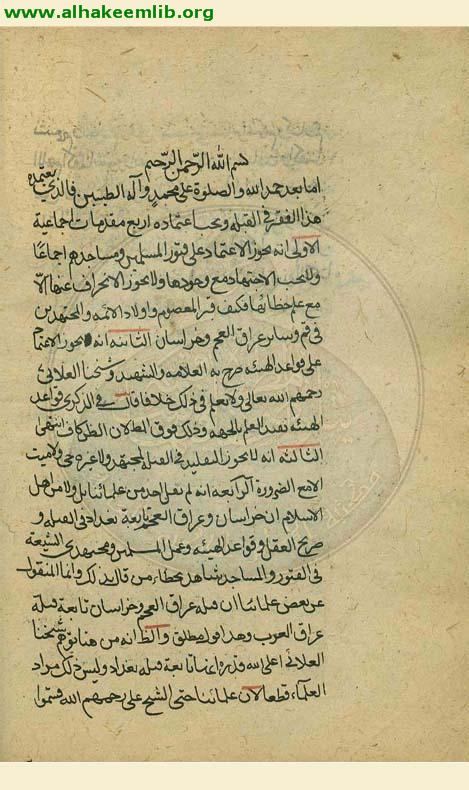 www.alhakeemlib.org
بسم الله الرحمن الرحيم
اما بعد حمد الله والصلوة على محمد وآله الطيبين فالذي يعتمده
هذا الفقير في القبلة ويجب اعتماده اربع مقدمات اجماعية
الاولى انه يجوز الاعتماد على قبور المسلمين ومساجدهم اجماعًا
ولا يجب الاجتهاد مع وجودها ولا يجوز الانحراف عنها الّا
مع علم خطائها فكيف قبر المعصوم واولاد الائمه والمجتهدين
في قم وساير عراق العجم وخراسان الثانية انه يجوز الاعتماد
على قواعد الهيئه صرح به العلامه والشهيد وشيخنا العلائي
رحمهم الله تعالى ولا نعلم في ذلك خلافا قال في الذكرى قواعد
الهيئه تفيد العلم بالجهه وذلك فوق الظن انتهى
الثالثة انه لا يجوز التقليد في القبلة لمجتهد ولا غيره حي ولا ميت
الا مع الضرورة الرابعه انه لم يقل احد من علمائنا بل ولا من اهل
الاسلام ان خراسان وعراق العجم تابعة بغداد في القبله و
صريح العقل وقواعد الهيئه وعمل المسلمين ومجتهدي الشيعة
في القبور والمساجد شاهد بخطاء من قال بذلك وانما المنقول
عن بعض علمائنا ان قبلة عراق العجم وخراسان تابعة قبلة
عراق العرب وهذا قول مطلق والظ انه من هنا توهم شيخنا
العلائي اعلى الله قدره انها تابعة قبله بغداد وليس ذلك مراد
العلماء قطعا لان علمائنا حتى الشيخ علي رحمهم الله قسموا